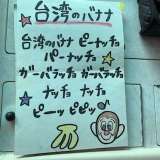 台湾のバナナ
台湾のバナナ ピーナッチョ
パーナッチョ
ガーバラッチョ ガーバラッチョ
ナッチョ ナッチョ
ピーッ ピピッ